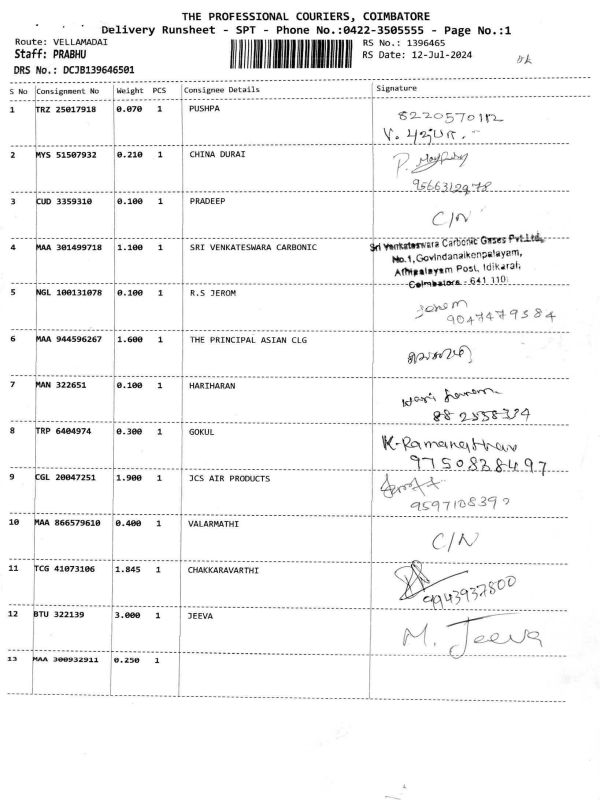 THE PROFESSIONAL COURIERS, COIMBATORE
Delivery Runsheet - SPT - Phone No.:0422-3505555 - Page No.:1
Route: VELLAMADAI RS No.: 1396465
Staff: PRABHU RS Date: 12-Jul-2024
DRS No.: DCJB139646501
S No Consignment No Weight PCS Consignee Details Signature
1 TRZ 25017918 0.070 1 PUSHPA
8220570112
2 MYS 51507932 0.210 1 CHINA DURAI
9566312978
3 CUD 3359310 0.100 1 PRADEEP
C/N
4 MAA 301499718 1.100 1 SRI VENKATESWARA CARBONIC Sri Venkateswara Carbonic Gases Pvt.Ltd.,
No.1,Govindanaikenpalayam,
Athipalayam Post, Idikarai,
Coimbatore - 641 110
5 NGL 100131078 0.100 1 R.S JEROM
Jerom
9047479384
6 MAA 944596267 1.600 1 THE PRINCIPAL ASIAN CLG
7 MAN 322651 0.100 1 HARIHARAN
8 TRP 6404974 0.300 1 GOKUL K-Ramanathan
9750828497
9 CGL 20047251 1.900 1 JCS AIR PRODUCTS
10 MAA 866579610 0.400 1 VALARMATHI
C/N
11 TCG 41073106 1.845 1 CHAKKARAVARTHI
9943937800
12 BTU 322139 3.000 1 JEEVA
M. Jeeva
13 MAA 300932911 0.250 1